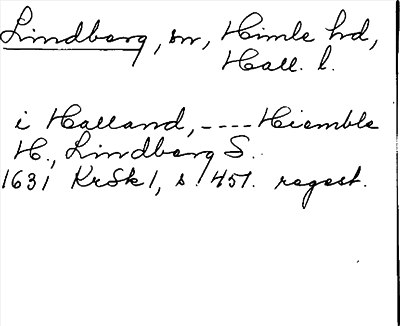 Lindberg, sn, Himle hd,
Hall. l.
i Halland, ---- Hiemble
H., Lindberg S.
1631 KrSk 1, s. 457. regest.